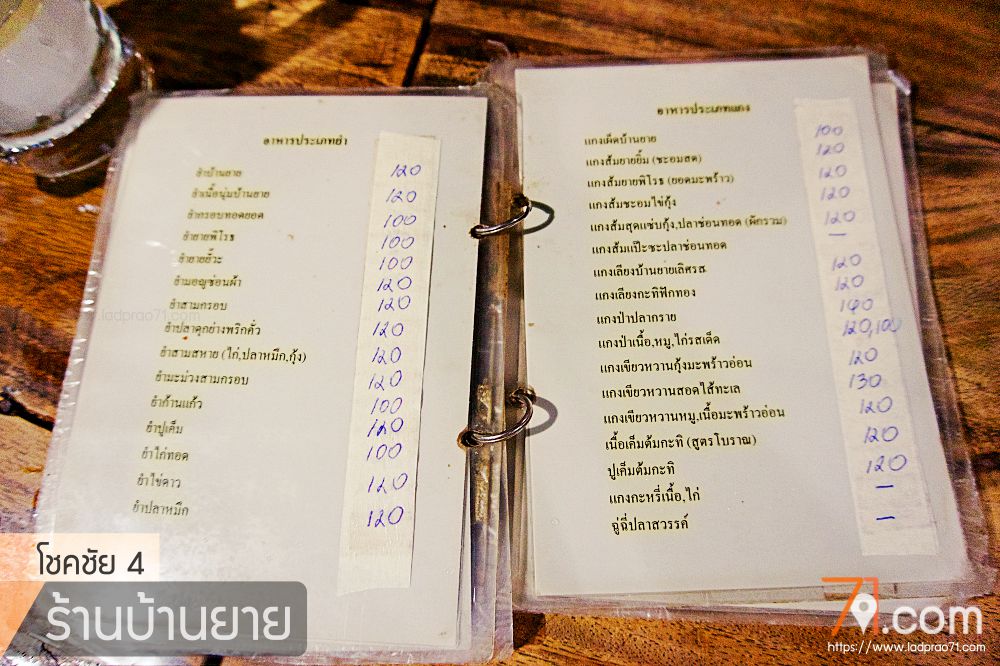 อาหารประเภทยำ
ยำบ้านยาย 120
ยำเนื้อนุ่มบ้านยาย 120
ยำกรอบทอดยอด 100
ยำยายพิโรธ 100
ยำยายยั๊วะ 100
ยำมอญซ่อนผ้า 120
ยำสามกรอบ 120
ยำปลาดุกย่างพริกคั่ว 120
ยำสามสหาย (ไก่,ปลาหมึก,กุ้ง) 120
ยำมะม่วงสามกรอบ 120
ยำก้านแก้ว 100
ยำปูเค็ม 120
ยำไก่ทอด 100
ยำไข่ดาว 120
ยำปลาหมึก 120
อาหารประเภทแกง
แกงเผ็ดบ้านยาย 100
แกงส้มยายยิ้ม (ชะอมสด) 120
แกงส้มยายพิโรธ (ยอดมะพร้าว) 120
แกงส้มชะอมไข่กุ้ง 120
แกงส้มสุดแซ่บกุ้ง,ปลาช่อนทอด (ผักรวม) 120
แกงส้มแป๊ะซะปลาช่อนทอด –
แกงเลียงบ้านยายเลิศรส 120
แกงเลียงกะทิฟักทอง 120
แกงป่าปลากราย 140
แกงป่าเนื้อ,หมู,ไก่รสเด็ด 120,100
แกงเขียวหวานกุ้งมะพร้าวอ่อน 120
แกงเขียวหวานสอดไส้ทะเล 130
แกงเขียวหวานหมู,เนื้อมะพร้าวอ่อน 120
เนื้อเค็มต้มกะทิ (สูตรโบราณ) 120
ปูเค็มต้มกะทิ 120
แกงกะหรี่เนื้อ,ไก่ –
ฉู่ฉี่ปลาสวรรค์ –
www.ladprao71.com
โชคชัย 4
ร้านบ้านยาย
71.com
https://www.ladprao71.com